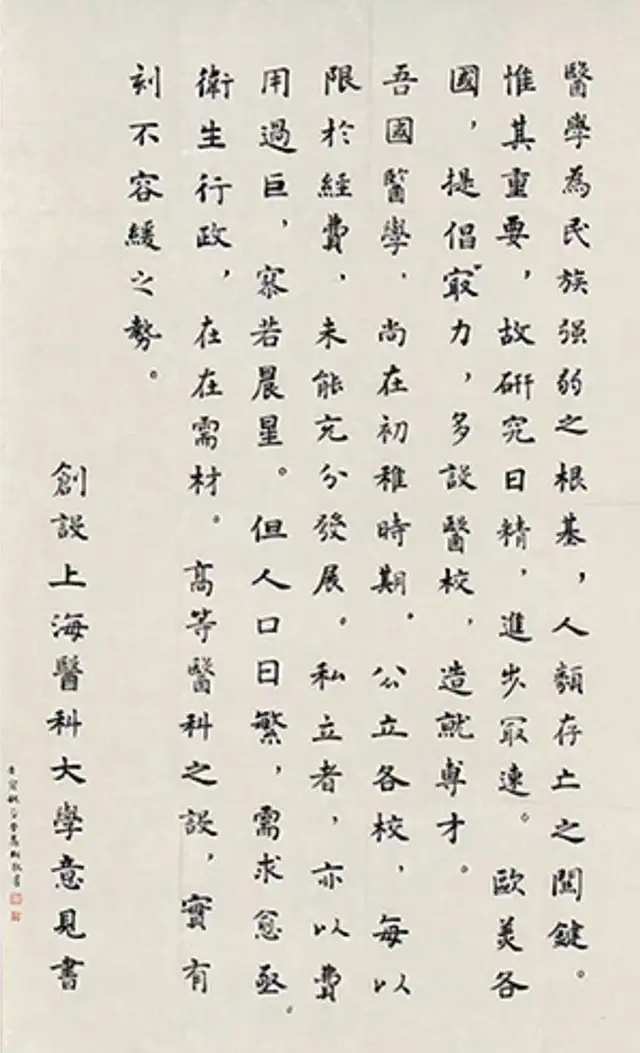 醫學為民族强弱之根基，人類存亡之關鍵。
惟其重要，故研究日精，進步冣速。歐美各
國，提倡冣力，多設醫校，造就專才。
吾國醫學，尚在初稚時期。公立各校，每以
限於經費，未能充分發展。私立者，亦以費
用過巨，寥若晨星。但人口日繁，需求愈亟。
衛生行政，在在需材。高等醫科之設，實有
刻不容緩之勢。
創設上海醫科大學意見書